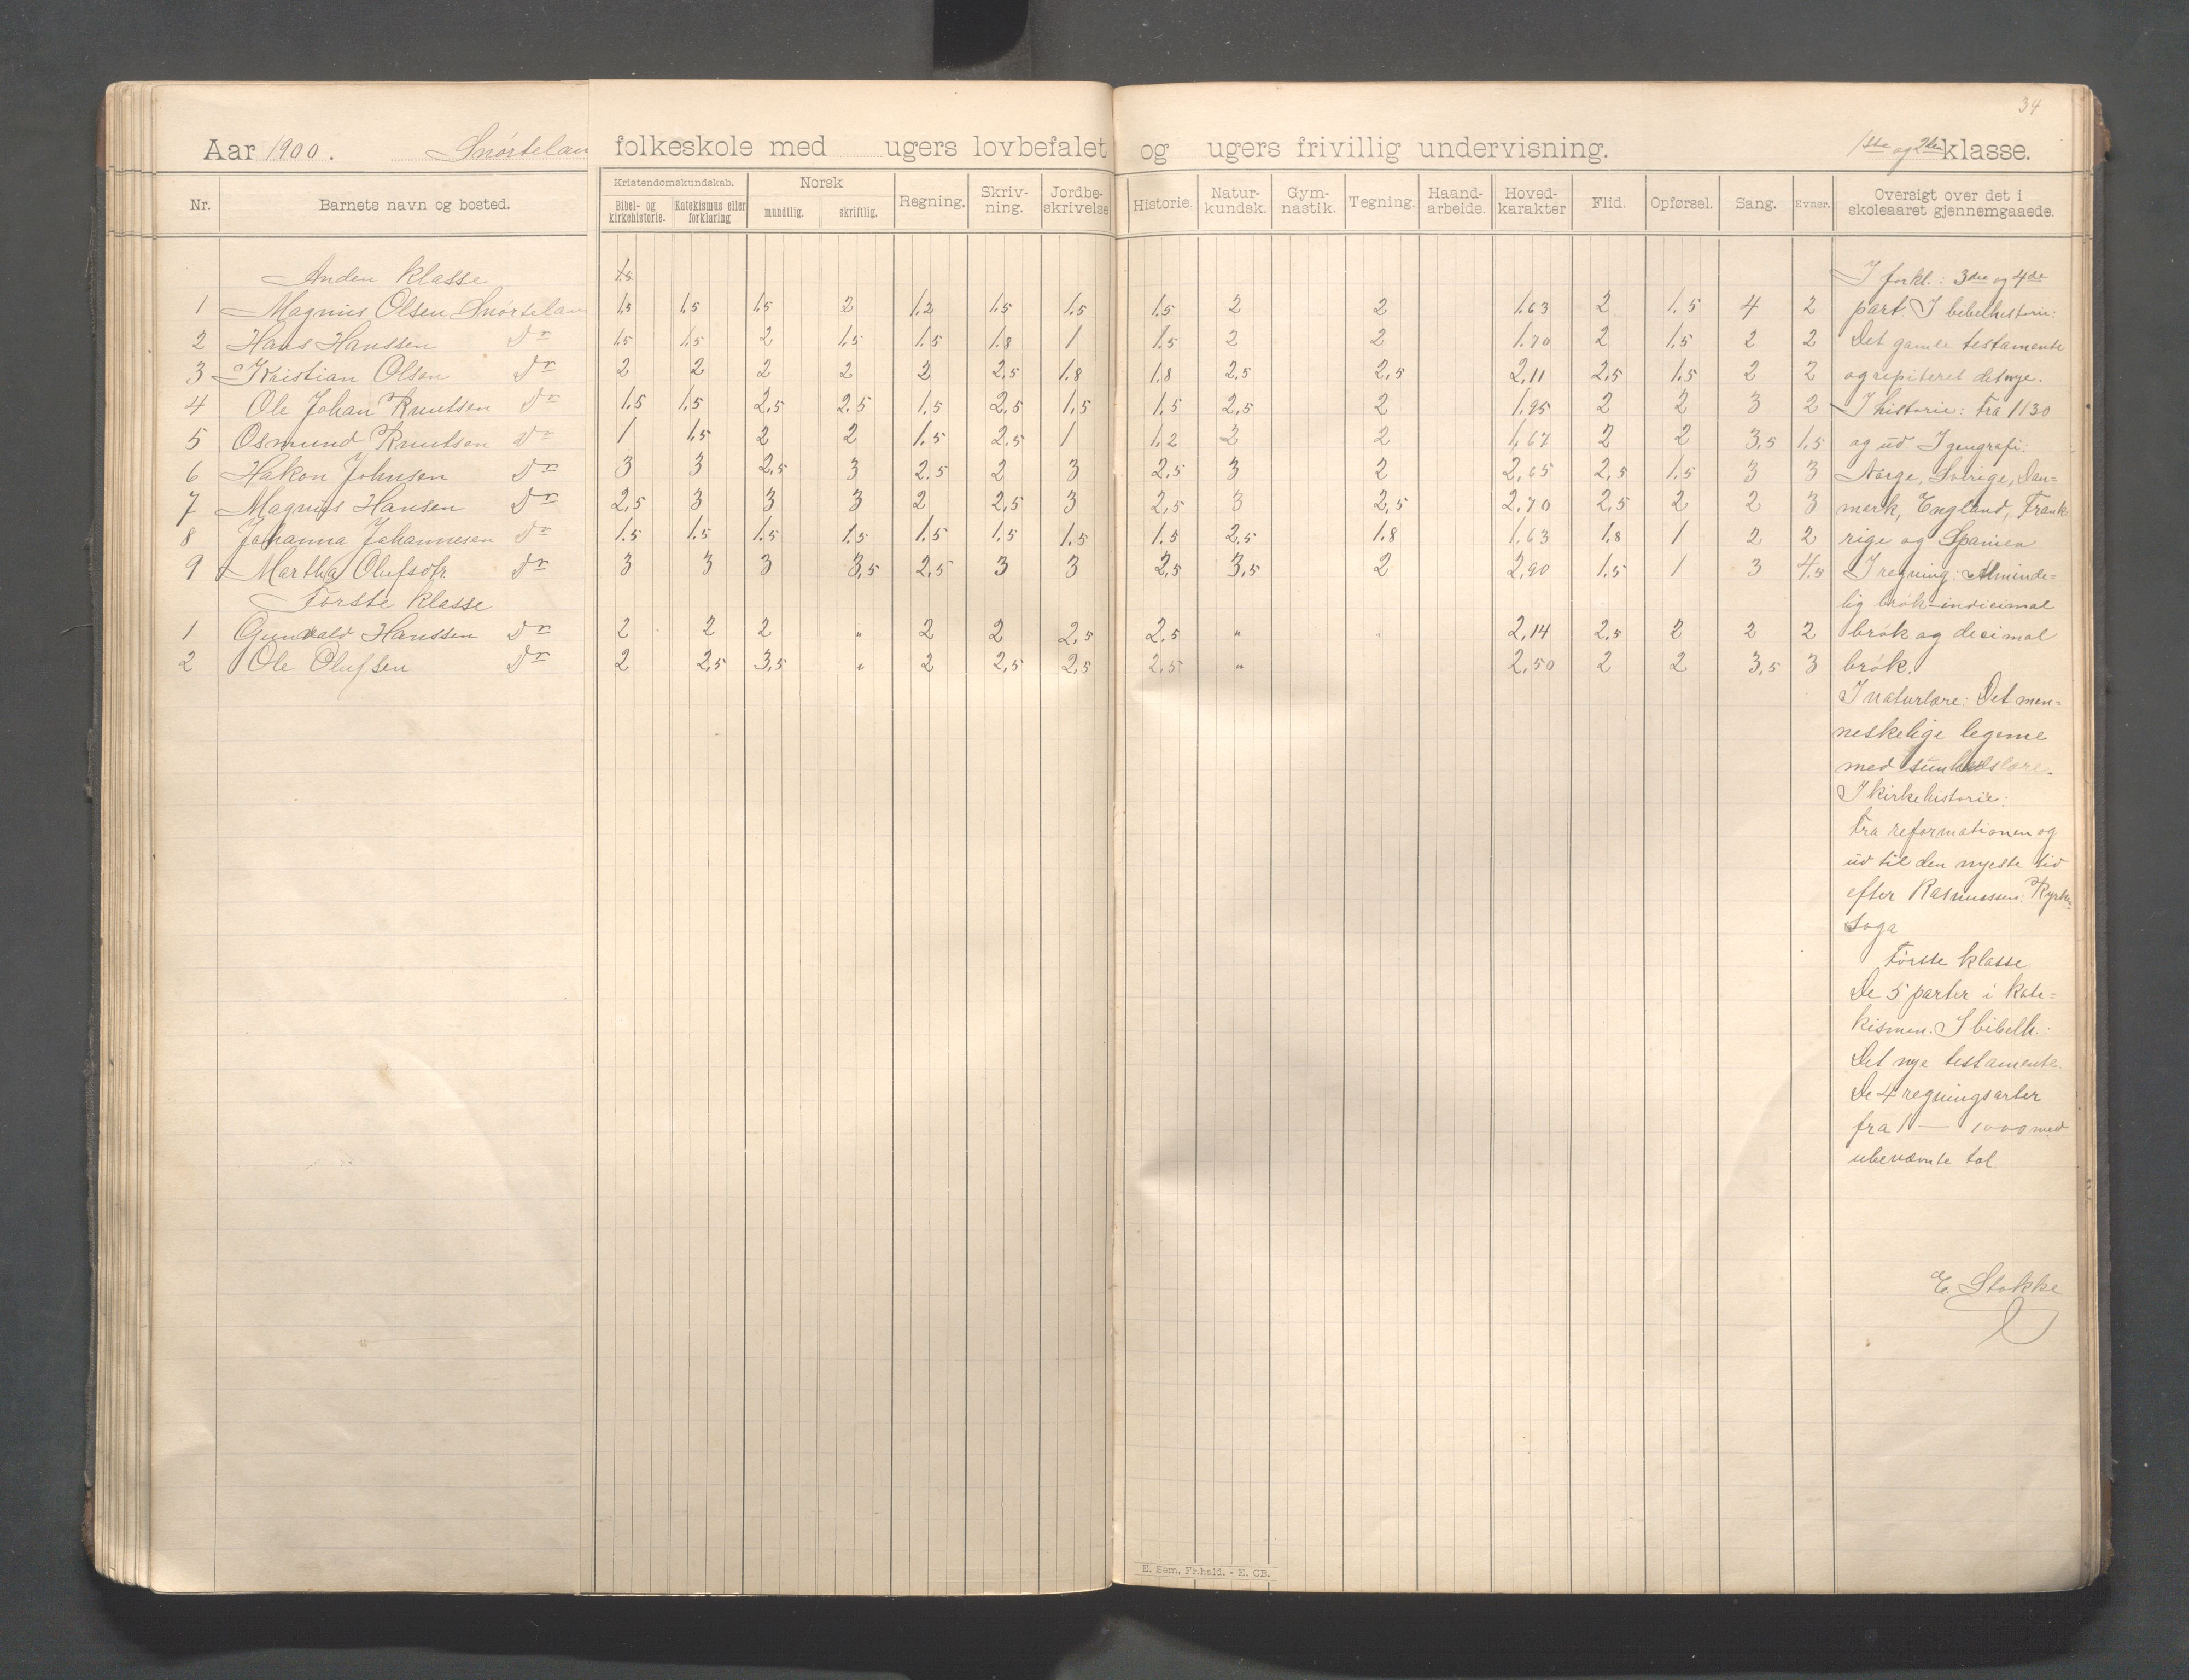 34
Aar 1900. Snørtelan folkeskole med ugers lovbefalet og ugers frivillig undervisning. 1ste og 2den klasse.
Nr. Barnets navn og bosted. Kristendomskundskab. Bibel- og kirkehistorie. Katekismus eller forklaring Norsk mundtlig. skriftlig. Regning. Skriv-ning. Jordbe-skrivelse Historie. Natur-kundsk. Gym-nastik. Tegning. Haand-arbeide. Hoved-karakter Flid. Opførsel. Sang. Evner. Oversigt over det i skoleaaret gjennemgaaede.
Anden klasse 1.5
1 Magnus Olsen Snørtelan 1.5 1.5 1.5 2 1.2 1.5 1.5 1.5 2 2 1.63 2 1.5 4 2
2 Hans Hanssen do 1.5 1.5 2 1.5 1.5 1.8 1 1.5 2 2 1.70 2 1.5 2 2
3 Kristian Olsen do 2 2 2 2 2 2.5 1.8 1.8 2.5 2.5 2.11 2.5 1.5 2 2
4 Ole Johan Knutsen do 1.5 1.5 2.5 2.5 1.5 2.5 1.5 1.5 2.5 2 1.95 2 2 3 2
5 Osmund Knutsen do 1 1.5 2 2 1.5 2.5 1 1.2 2 2 1.67 2 2 3.5 1.5
6 Hakon Johnsen do 3 3 2.5 3 2.5 2 3 2.5 3 2 2.65 2.5 1.5 3 3
7 Magnus Hansen do 2.5 3 3 3 2 2.5 3 2.5 3 2.5 2.70 2.5 2 2 3
8 Johanna Johannesen do 1.5 1.5 1.5 1.5 1.5 1.5 1.5 1.5 2.5 1.8 1.63 1.8 1 2 2
9 Martha Olufsdtr do 3 3 3 3.5 2.5 3 3 2.5 3.5 2 2.90 1.5 1 3 4.5
Første klasse
1 Gunvald Hanssen do 2 2 2 " 2 2 2.5 2.5 " " 2.14 2.5 2 2 2
2 Ole Olufsen do 2 2.5 3.5 " 2 2.5 2.5 2.5 " 2.50 2 2 3.5 3
I forkl.: 3die og 4de
part I bibelhistorie:
Det gamle testamente
og repiteret det nye.
I historie: Fra 1130
og ud I geografi:
Norge, Sverige, Dan=
mark, England, Frank=
rige og Spanien
I regning: Alminde=
lig brøk-indicimal
brøk og decimal
brøk.
I naturlære: Det men=
neskelige legeme
med sundhedslære.
I kirkehistorie:
Fra reformationen og
ud til den nyeste tid
efter Rasmussen: Kyrkje=
soga
Første klasse
De 5 parter i kate=
kismen. I bibelh.:
Det nye testamente.
De 4 regningsarter
fra 1 — 1000 med
ubenævnte tal.
E. Stokke
E. Sem, Fr.hald. - E. CB.